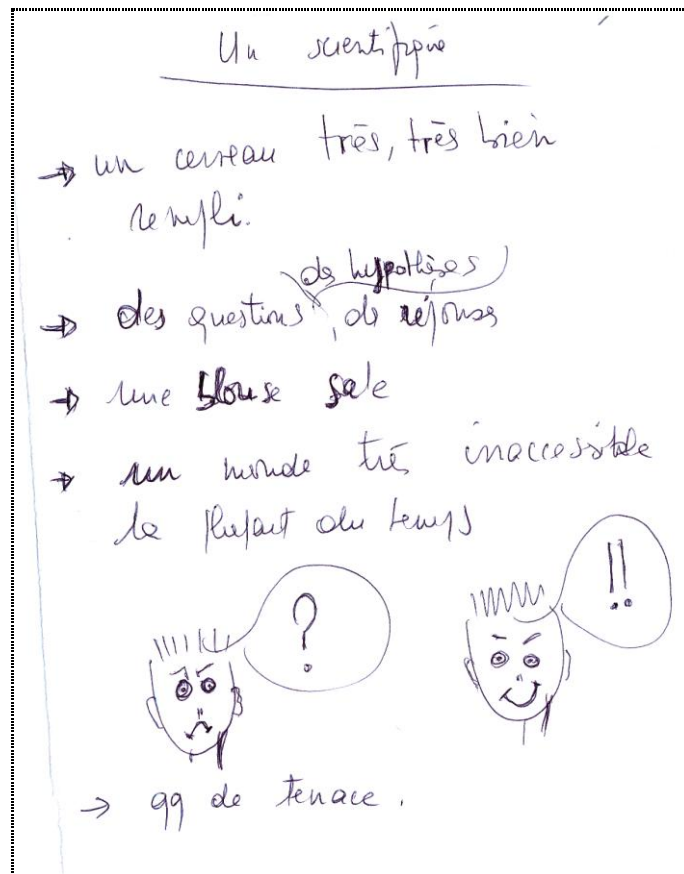 Un scientifique
→ un cerveau très, très bien
rempli.
des hypothèses
→ des questions, de réponses
→ une blouse sale
→ un monde très inaccessible
la plupart du temps
?
!!
→ qq de tenace.